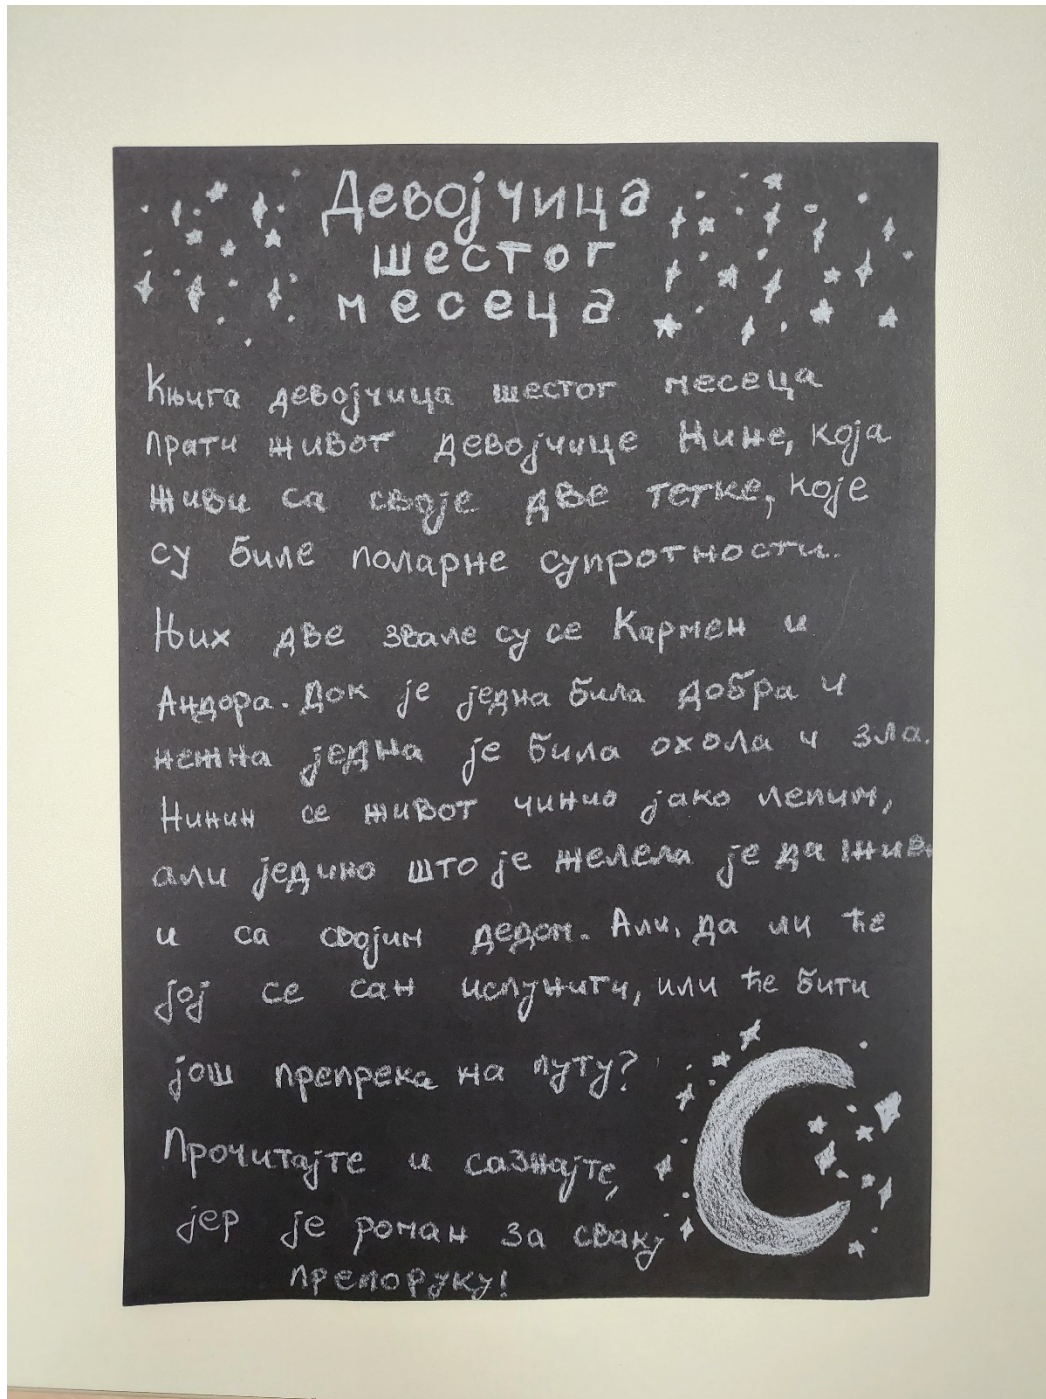 Девојчица
шестог
месеца
Књига девојчица шестог месеца
прати живот девојчице Нине, која
живи са своје две тетке, које
су биле поларне супротности.
Њих две звале су се Кармен и
Андора. Док је једна била добра и
нежна једна је била охола и зла.
Нинин се живот чинио јако лепим,
али једино што је желела је да живи
и са својим дедом. Али, да ли ће
јој се сан испунити, или ће бити
још препрека на путу?
Прочитајте и сазнајте,
јер је роман за сваку
препоруку!